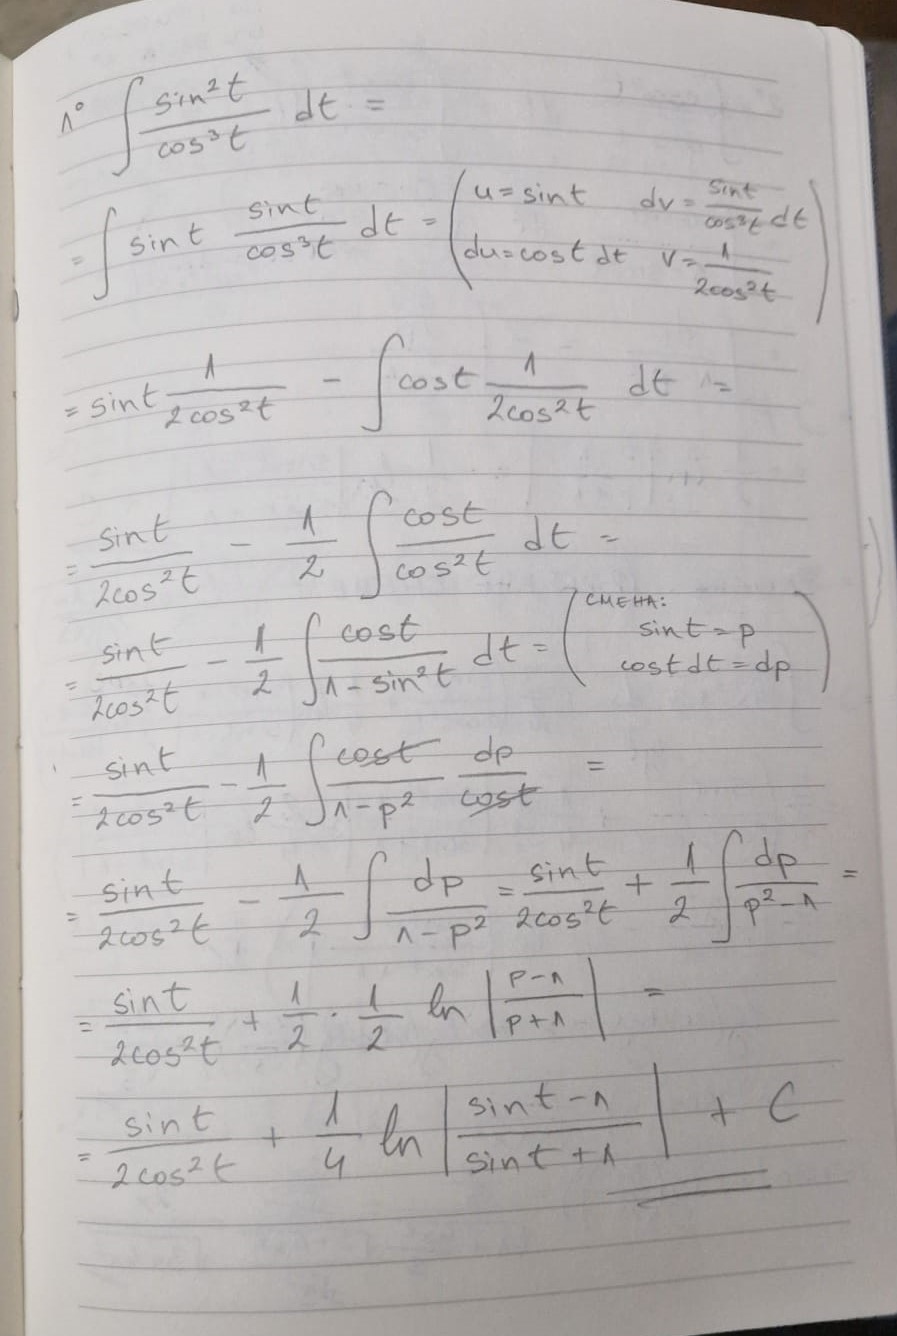 1° ∫ sin²t/cos³t dt =
= ∫ sint sint/cos³t dt = (u = sint dv = sint/cos³t dt
du = cost dt v = 1/2cos²t)
= sint 1/2cos²t - ∫ cost 1/2cos²t dt =
= sint/2cos²t - 1/2 ∫ cost/cos²t dt =
= sint/2cos²t - 1/2 ∫ cost/1-sin²t dt = (СМЕНА:
sint = p
cost dt = dp)
= sint/2cos²t - 1/2 ∫ cost/1-p² dp/cost =
= sint/2cos²t - 1/2 ∫ dp/1-p² = sint/2cos²t + 1/2 ∫ dp/p²-1 =
= sint/2cos²t + 1/2 · 1/2 ln |p-1/p+1| =
= sint/2cos²t + 1/4 ln |sint-1/sint+1| + C